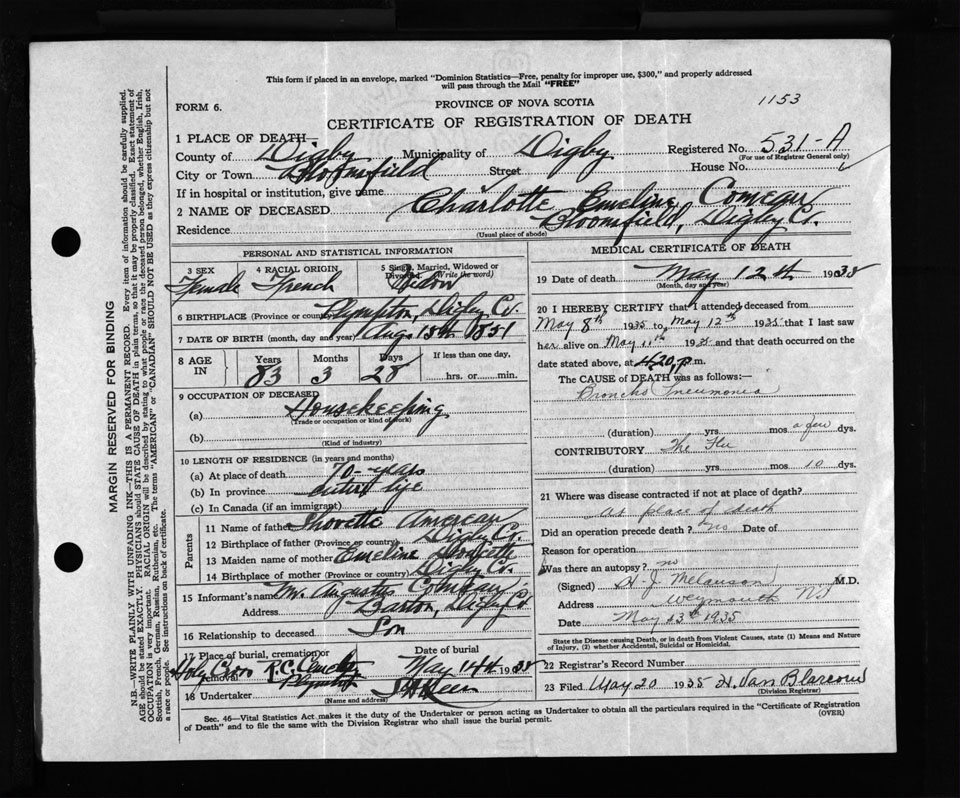 This form if placed in an envelope, marked "Dominion Statistics—Free, penalty for improper use, $300," and properly addressed
will pass through the Mail "FREE"
FORM 6.
PROVINCE OF NOVA SCOTIA
1153
CERTIFICATE OF REGISTRATION OF DEATH
1 PLACE OF DEATH—
County of Digby Municipality of Digby Registered No. 531-A
(For use of Registrar General only)
City or Town Bloomfield Street House No.
If in hospital or institution, give name
2 NAME OF DECEASED Charlotte Emeline Comeau
Residence Bloomfield, Digby Co.
(Usual place of abode)
PERSONAL AND STATISTICAL INFORMATION
3 SEX 4 RACIAL ORIGIN 5 Single, Married, Widowed or Divorced (Write the word)
Female French Widow
6 BIRTHPLACE (Province or country) Plympton, Digby Co.
7 DATE OF BIRTH (month, day and year) Aug 15th 1851
8 AGE IN Years Months Days If less than one day,
83 3 28 hrs. or min.
9 OCCUPATION OF DECEASED
(a) Housekeeping
(Trade or occupation or kind of work)
(b)
(Kind of industry)
10 LENGTH OF RESIDENCE (in years and months)
(a) At place of death 70 - years
(b) In province entire life
(c) In Canada (if an immigrant)
Parents
11 Name of father
12 Birthplace of father (Province or country) Digby Co.
13 Maiden name of mother Emeline
14 Birthplace of mother (Province or country) Digby Co.
15 Informant's name Mr. Augustus Comeau
Address Barton, Digby Co
16 Relationship to deceased Son
17 Place of burial, cremation or Date of burial
Holy Cross R.C. Cemetery Plympton May 14th 1935
18 Undertaker
(Name and address)
MEDICAL CERTIFICATE OF DEATH
19 Date of death May 12th 1935
(Month, day and year)
20 I HEREBY CERTIFY that I attended deceased from
May 8th 1935 to May 12th 1935 that I last saw
her alive on May 11th 1935 and that death occurred on the
date stated above, at 4.20 p.m.
The CAUSE OF DEATH was as follows:
Broncho Pneumonia
(duration) yrs. mos a few dys.
CONTRIBUTORY The Flu
(duration) yrs. mos 10 dys.
21 Where was disease contracted if not at place of death?
At place of death
Did an operation precede death? No Date of
Reason for operation
Was there an autopsy? no
(Signed) H. J. Melanson M.D.
Address Weymouth NS
Date May 13th 1935
State the Disease causing Death, or in death from Violent Causes, state (1) Means and Nature
of Injury, (2) whether Accidental, Suicidal or Homicidal.
22 Registrar's Record Number
23 Filed May 20 1935 H. Van Blarcom
(Division Registrar)
Sec. 46—Vital Statistics Act makes it the duty of the Undertaker or person acting as Undertaker to obtain all the particulars required in the "Certificate of Registration
of Death" and to file the same with the Division Registrar who shall issue the burial permit.
(OVER)
MARGIN RESERVED FOR BINDING
N.B.—WRITE PLAINLY WITH UNFADING INK—THIS IS A PERMANENT RECORD. Every item of information should be carefully supplied.
AGE should be stated EXACTLY. PHYSICIANS should STATE CAUSE OF DEATH in plain terms, so that it may be properly classified. Exact statement of
OCCUPATION is very important. RACIAL ORIGIN will be described by stating to what people or race the deceased person belonged, whether English, Irish,
Scottish, French, German, Russian, Ruthenian, etc. The terms "AMERICAN" or "CANADIAN" SHOULD NOT BE USED as they express citizenship but not
a race or people. See instructions on back of certificate.